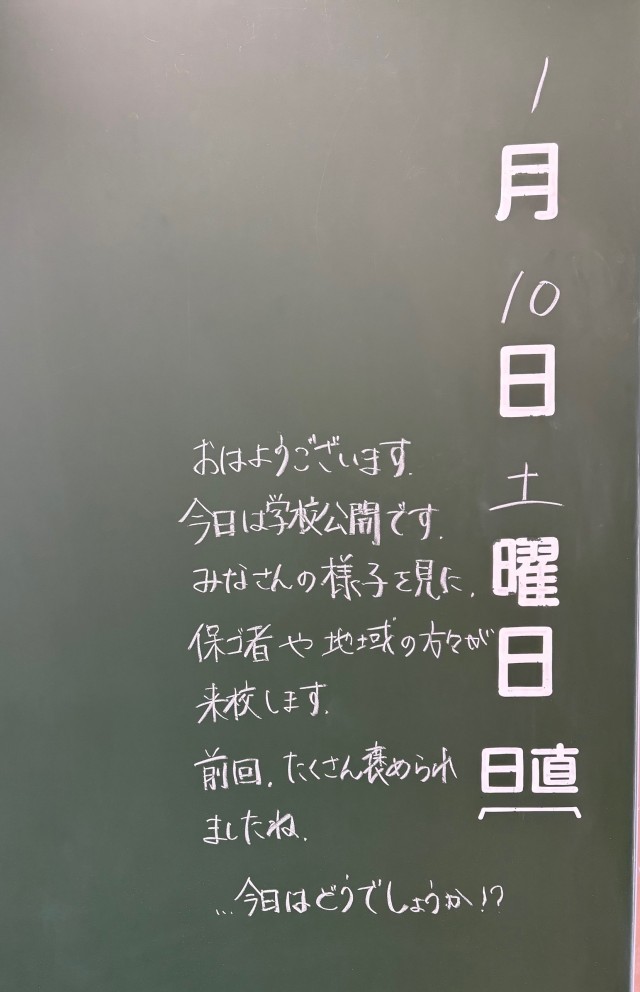 1月10日土曜日
日直
おはようございます.
今日は学校公開です.
みなさんの様子を見に,
保ゴ者や地域の方々が
来校します.
前回,たくさん褒められ
ましたね.
...今日はどうでしょうか!?